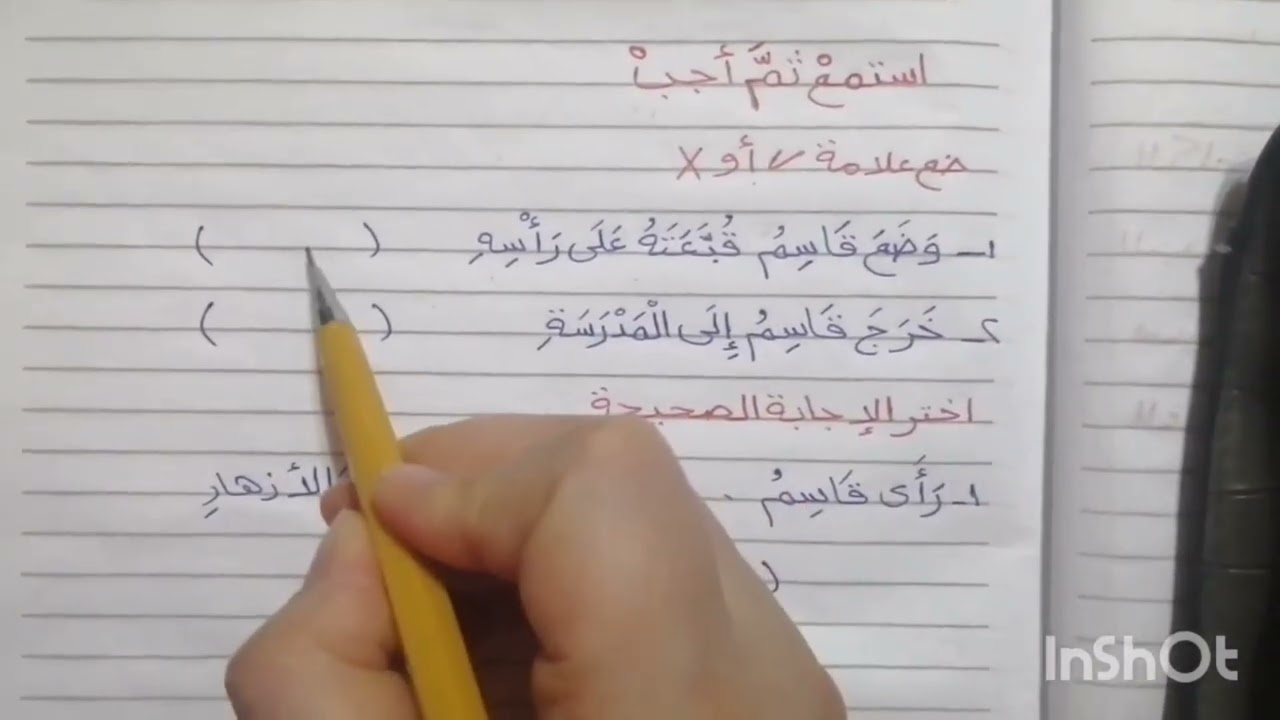 استمعْ ثمَّ أجبْ
ضع علامة ✓ أو X
١- وَضَعَ قَاسِمُ قُبَّعَتَهُ عَلَى رَأْسِهِ ( )
٢- خَرَجَ قَاسِمُ إِلَى الْمَدْرَسَةِ ( )
اختر الإجابة الصحيحة
١- رَأَى قَاسِمُ . الأزهارِ
(
InShOt